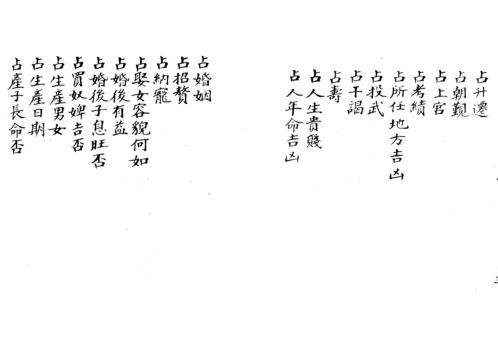 占升遷
占朝覲
占上官
占考績
占所任地方吉凶
占投武
占干謁
占壽
占人生貴賤
占人年命吉凶
占婚姻
占招贅
占納寵
占娶女容貌何如
占婚後有益
占婚後子息旺否
占買奴婢吉否
占生產男女
占生產日期
占產子長命否